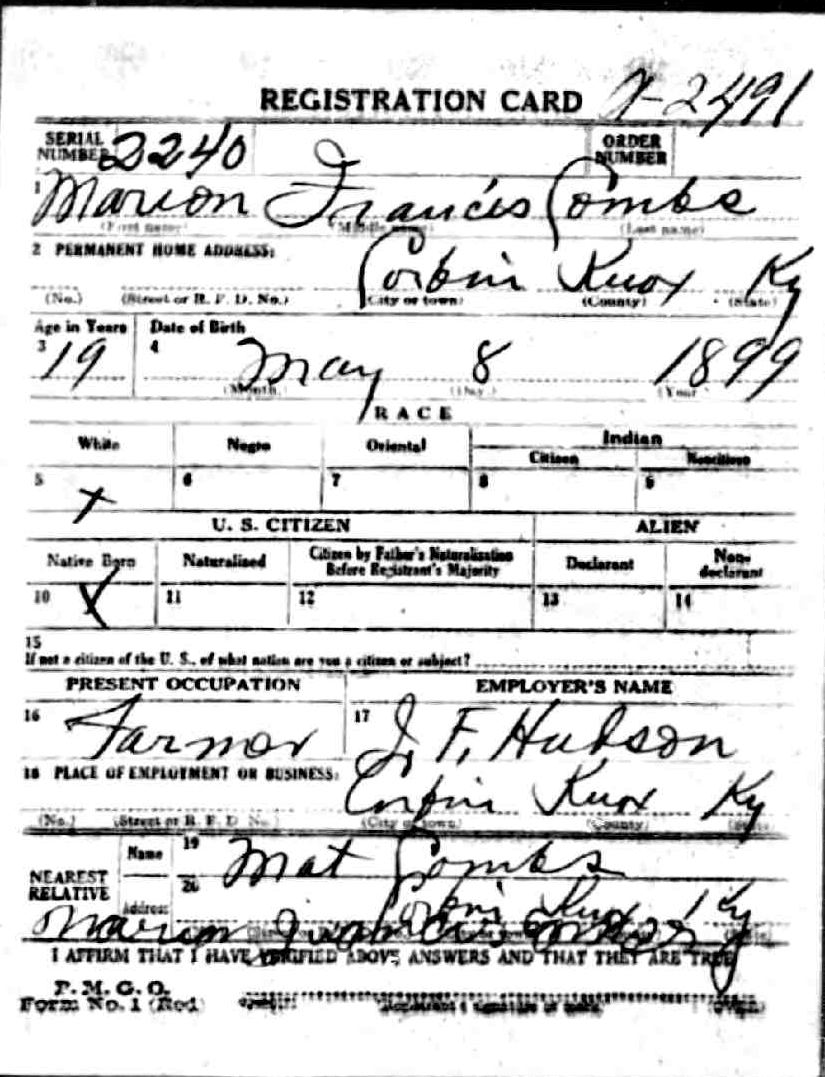 REGISTRATION CARD A-2491
SERIAL NUMBER 2240 ORDER NUMBER
1 Marion Francis Combs
(First name) (Middle name) (Last name)
2 PERMANENT HOME ADDRESS:
Corbin Knox Ky
(No.) (Street or R. F. D. No.) (City or town) (County) (State)
Age in Years Date of Birth
3 19 4 May 8 1899
(Month.) (Day.) (Year
RACE
White Negro Oriental Indian
Citizen Noncitizen
5 X 6 7 8 9
U. S. CITIZEN ALIEN
Native Born Naturalized Citizen by Father's Naturalization Before Registrant's Majority Declarant Non-declarant
10 X 11 12 13 14
15
If not a citizen of the U. S., of what nation are you a citizen or subject?
PRESENT OCCUPATION EMPLOYER'S NAME
16 Farmer 17 J. F. Hudson
18 PLACE OF EMPLOYMENT OR BUSINESS:
Corbin Knox Ky
(No.) (Street or R. F. D No.) (City or town) (County) (State
NEAREST RELATIVE Name 19 Mat Combs
Address 20 Corbin Knox Ky
Marion Francis Combs
I AFFIRM THAT I HAVE VERIFIED ABOVE ANSWERS AND THAT THEY ARE TRUE
P. M. G. O.
Form No. 1 (Red) (Registrant's signature or mark)